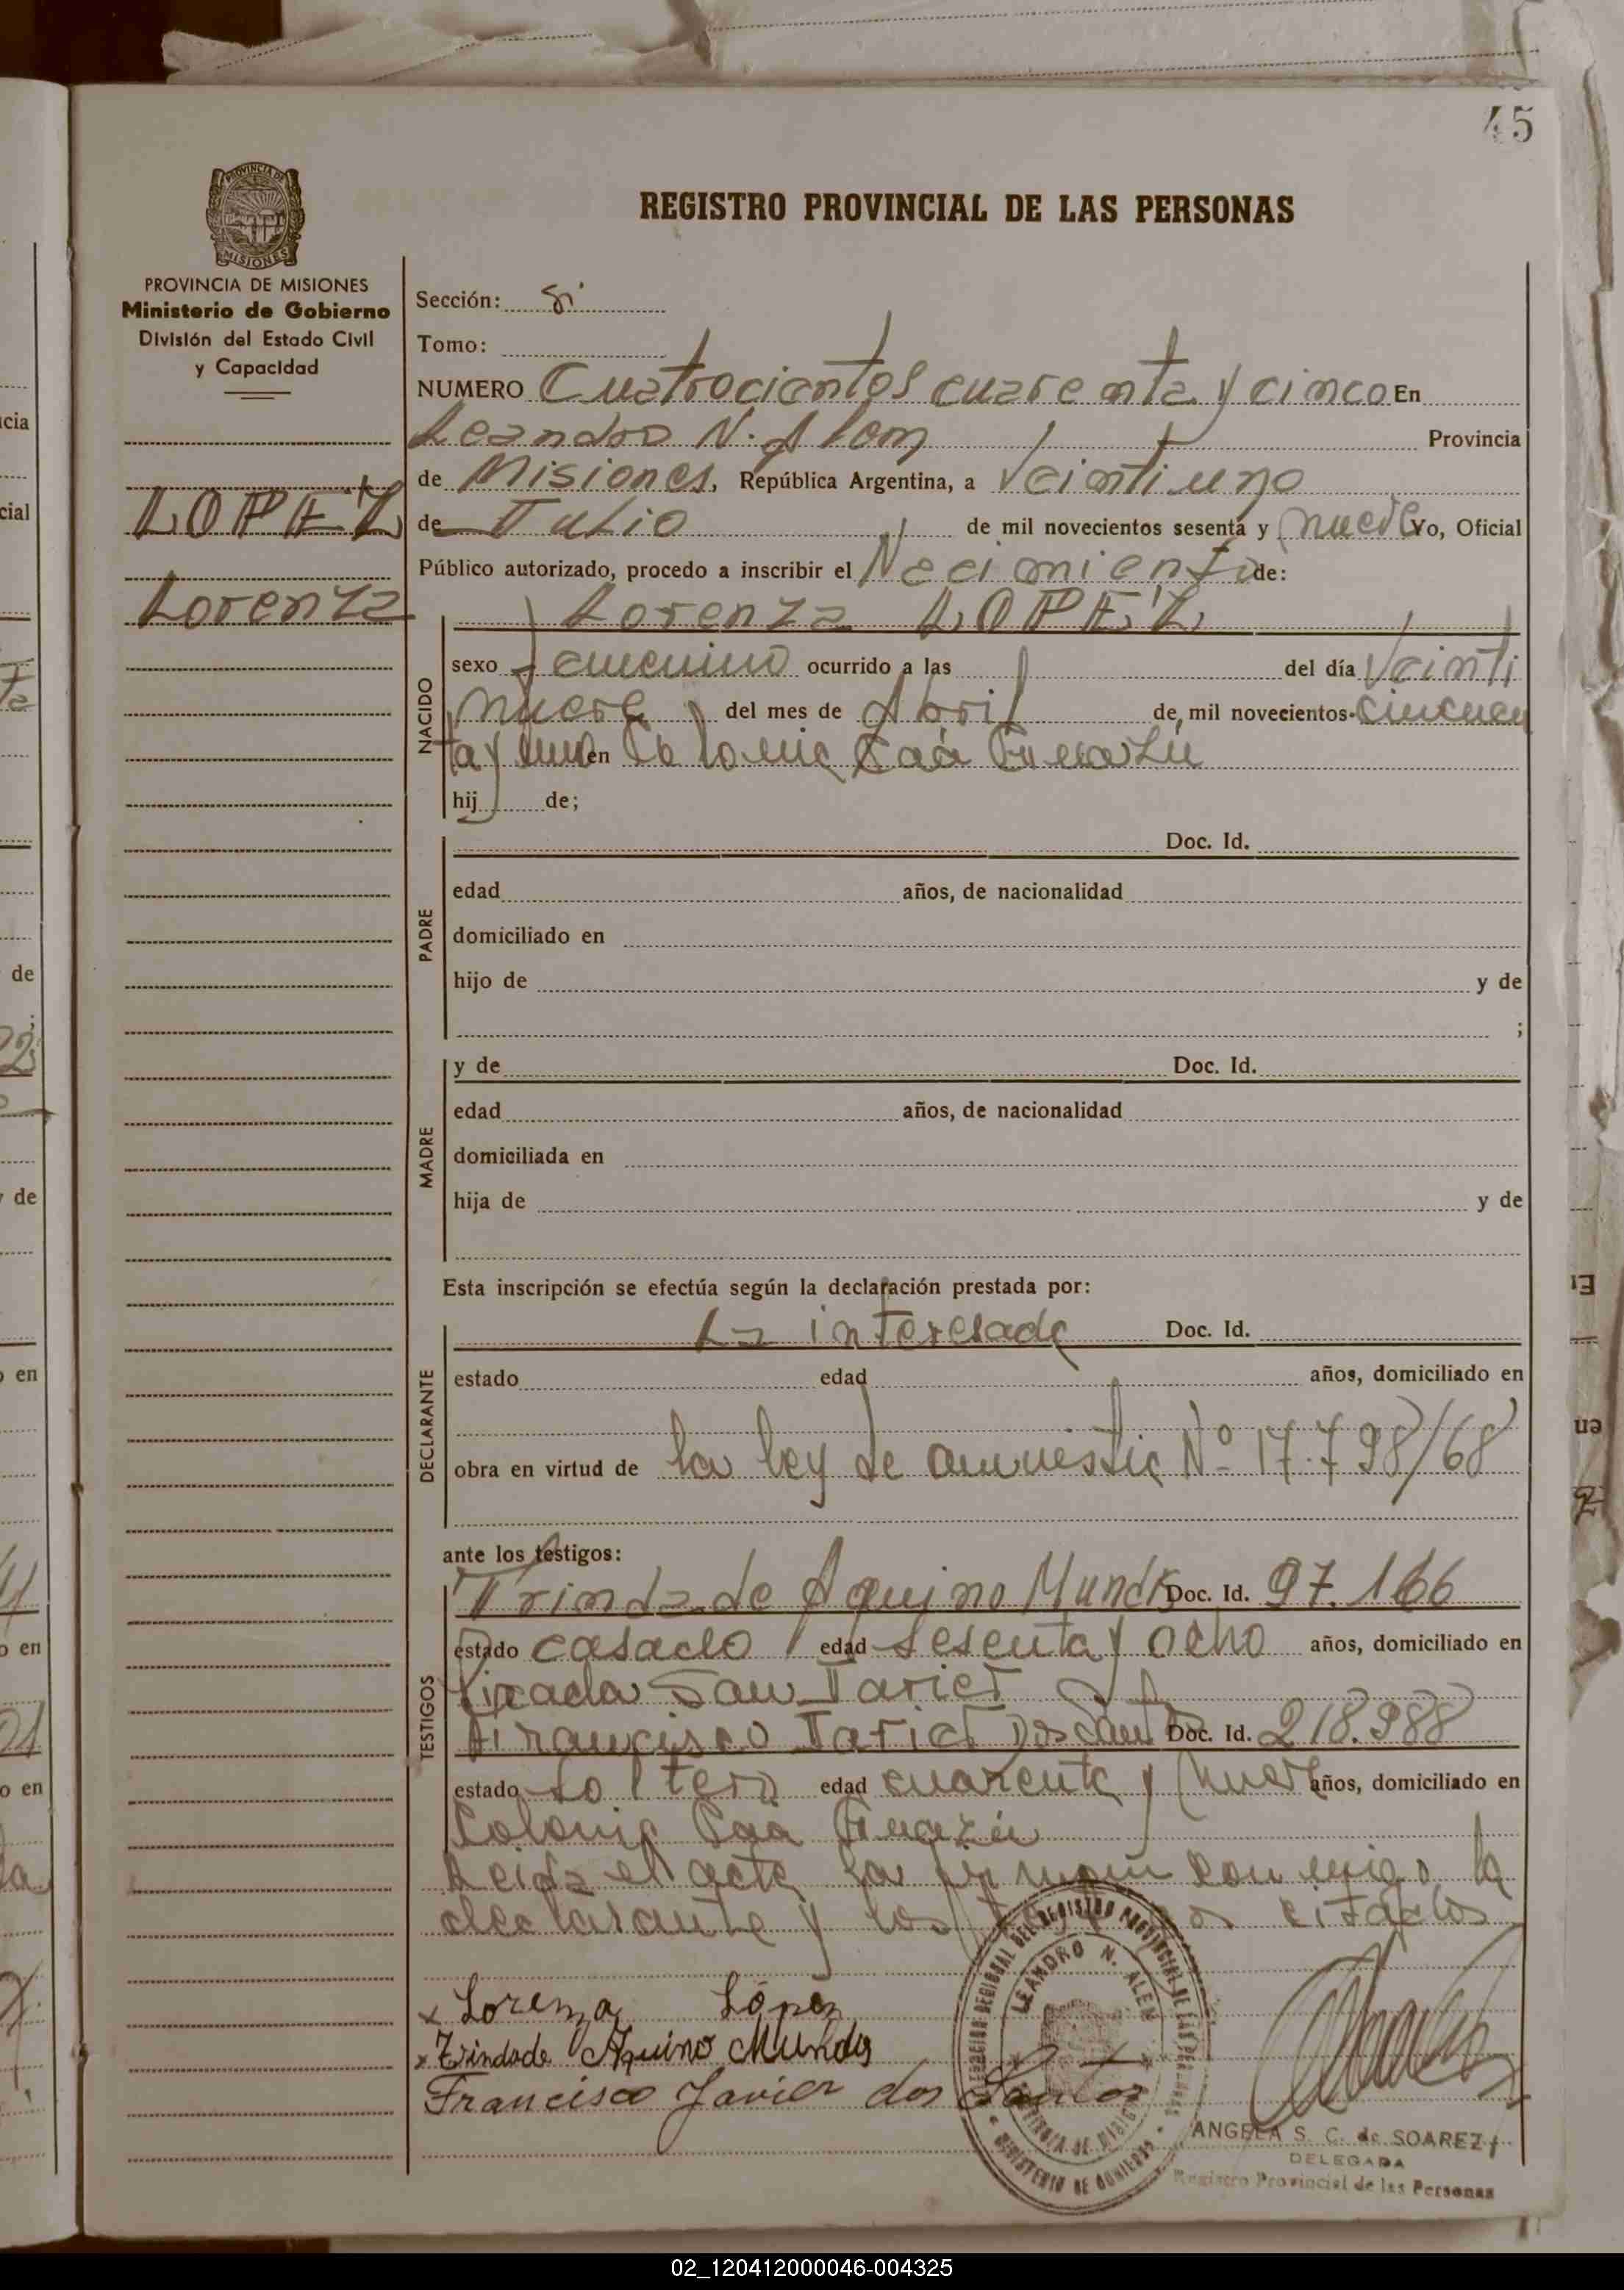 45
REGISTRO PROVINCIAL DE LAS PERSONAS
PROVINCIA DE MISIONES
Ministerio de Gobierno
División del Estado Civil
y Capacidad
LOPEZ
Lorenza
Sección:
Tomo:
NUMERO Cuatrocientos cuarenta y cinco En
Leandro N. Alem Provincia
de Misiones, República Argentina, a Veintiuno
de Julio de mil novecientos sesenta y nueve Yo, Oficial
Público autorizado, procedo a inscribir el Nacimiento de:
Lorenza LOPEZ
NACIDO
sexo femenino ocurrido a las del día Veinti
nueve del mes de Abril de mil novecientos cincuen
ta y uno en Colonia Caá Guazú
hij de;
PADRE
Doc. Id.
edad años, de nacionalidad
domiciliado en
hijo de y de
;
MADRE
y de Doc. Id.
edad años, de nacionalidad
domiciliada en
hija de y de
Esta inscripción se efectúa según la declaración prestada por:
DECLARANTE
La interesada Doc. Id.
estado edad años, domiciliado en
obra en virtud de la ley de amnistia Nº 17.798/68
ante los testigos:
TESTIGOS
Trindade Aquino Mundis Doc. Id. 97.166
estado casado edad sesenta y ocho años, domiciliado en
Picada San Javier
Francisco Javier Dos Santos Doc. Id. 218.988
estado soltero edad cuarenta y nueve años, domiciliado en
Colonia Caá Guazú
Leida el acta la firman conmigo la
declarante y los testigos citados
x Lorenza López
x Trindade Aquino Mundis
Francisco Javier dos Santos
LEANDRO N. ALEM
MINISTERIO DE GOBIERNO
ANGELA S. C. de SOAREZ
DELEGADA
Registro Provincial de las Personas
02_120412000046-004325